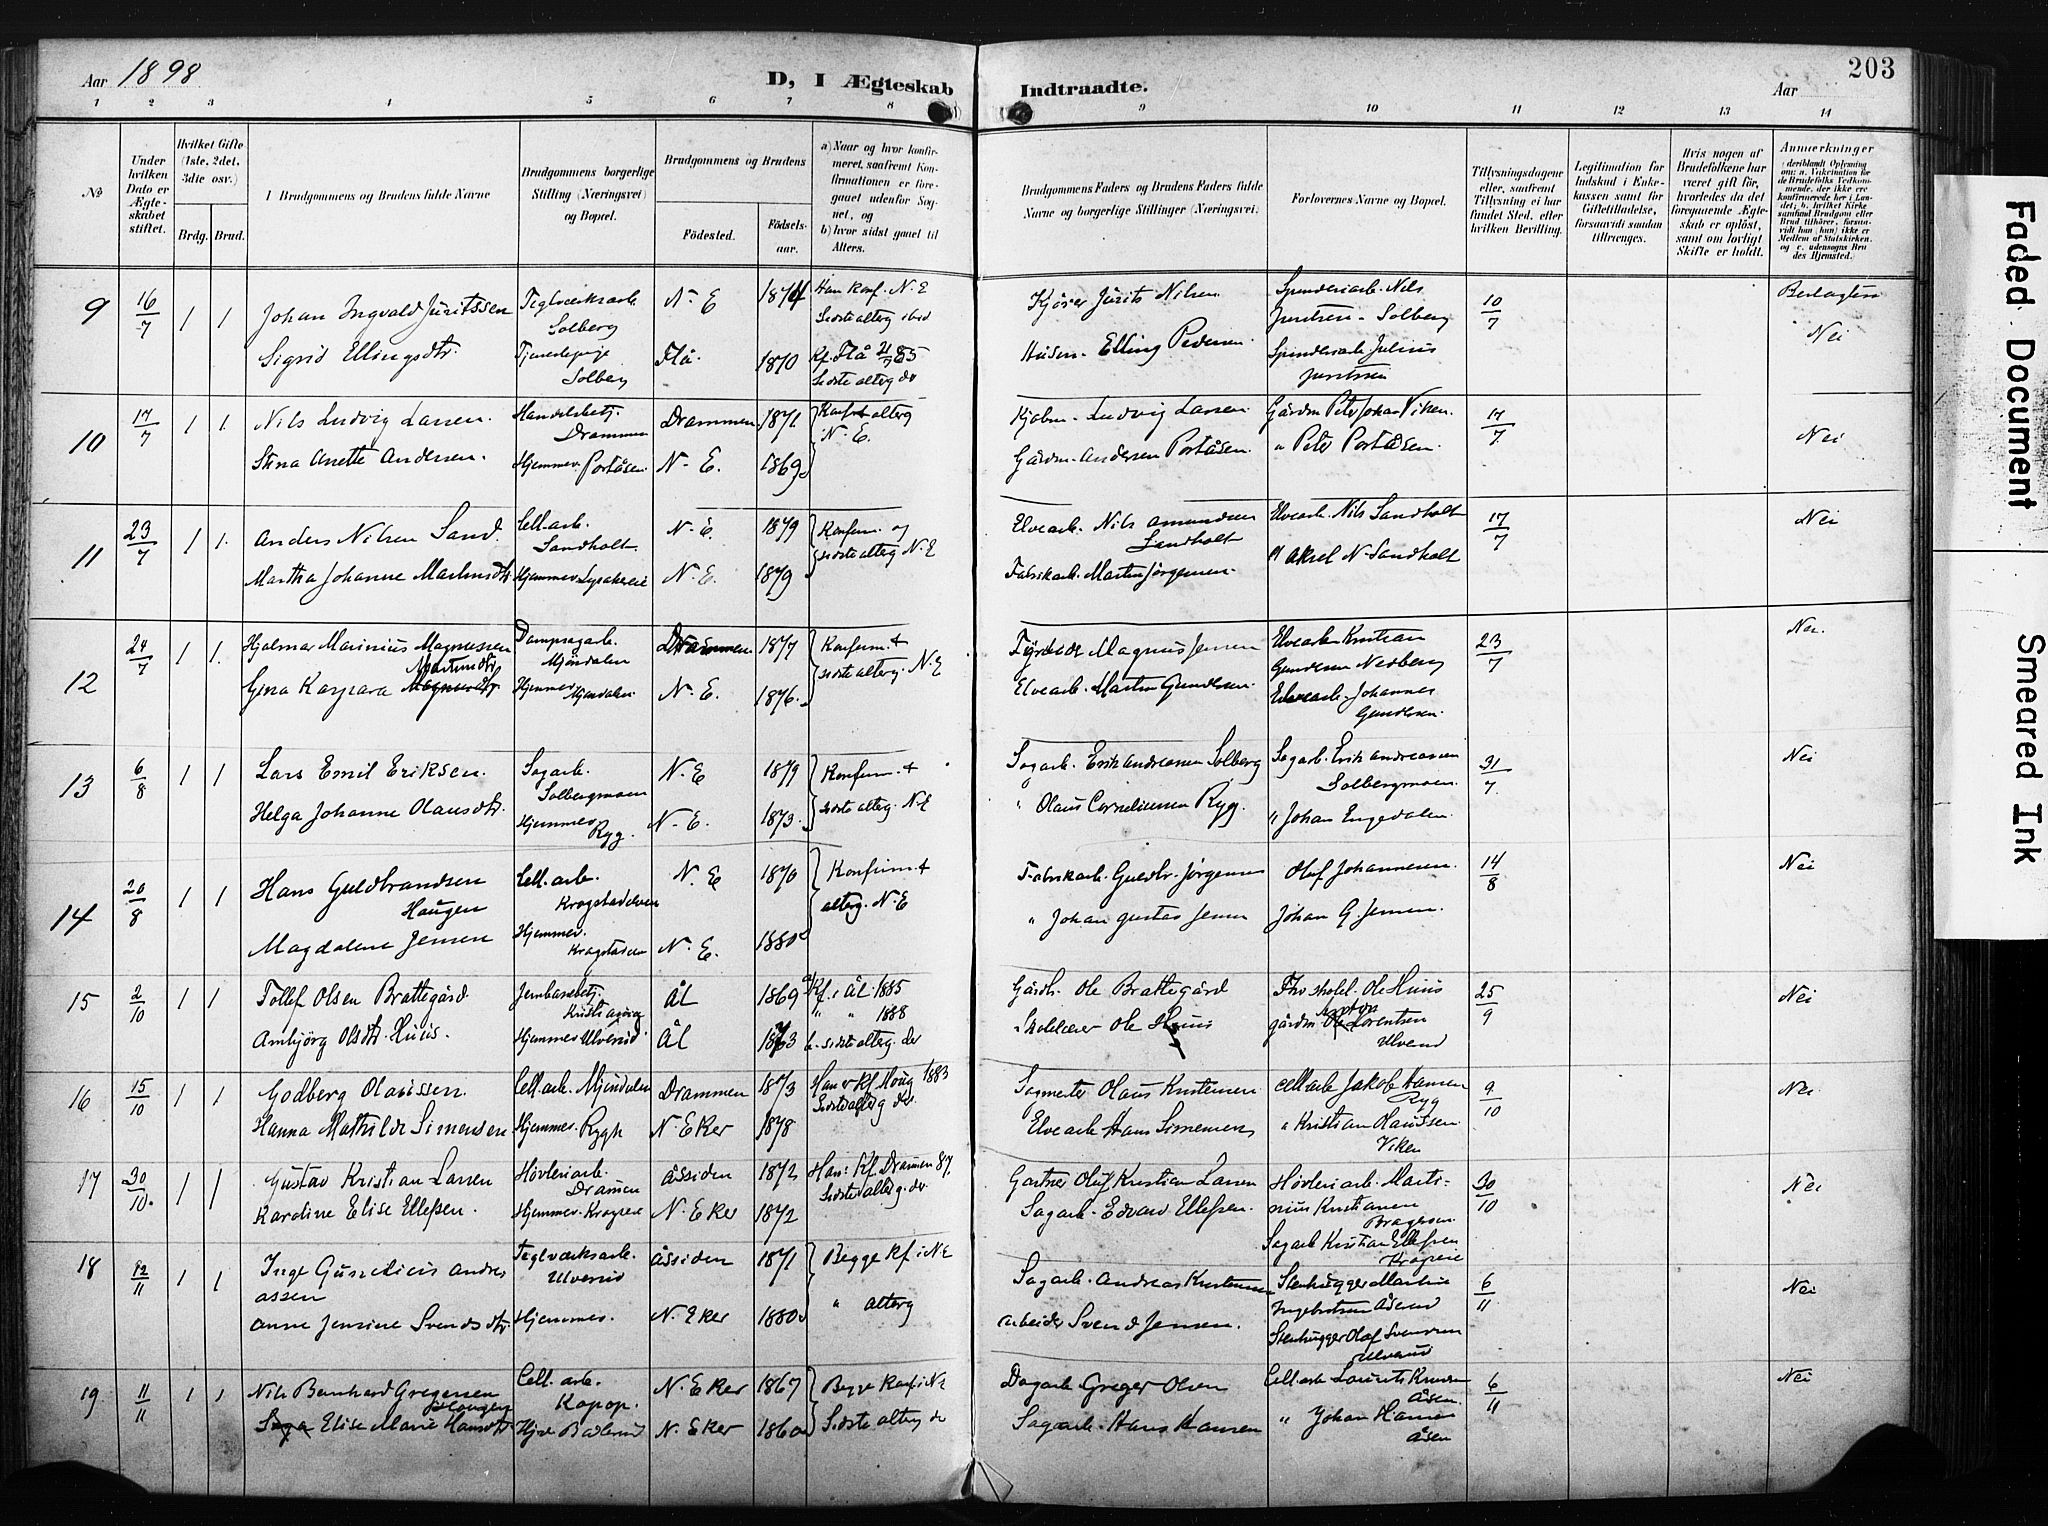 Aar 1898
D, I Ægteskab Indtraadte.
Aar
203
1 2 3 4 5 6 7 8 9 10 11 12 13 14
№
Under hvilken Dato er Ægteskabet stiftet.
Hvilket Gifte (1ste, 2det, 3die osv.)
Brdg. Brud.
Brudgommens og Brudens fulde Navne
Brudgommens borgerlige Stilling (Næringsvei) og Bopæl.
Brudgommens og Brudens
Fødested.
Fødselsaar.
a) Naar og hvor konfirmeret, saafremt Konfirmationen er foregaaet udenfor Sognet, og
b) hvor sidst gaaet til Alters.
Brudgommens Faders og Brudens Faders fulde Navne og borgerlige Stillinger (Næringsvei).
Forlovernes Navne og Bopæl.
Tillysningsdagene eller, saafremt Tillysning ei har fundet Sted, efter hvilken Bevilling.
Legitimation for Indskud i Enkekassen samt for Giftetilladelse, forsaavidt saadan tiltrænges.
Hvis nogen af Brudefolkene har været gift før, hvorledes da det foregaaende Ægteskab er opløst, samt om lovligt Skifte er holdt.
Anmerkninger
9 16/7 1 1 Johan Ingvald Juritssen Teglværksarb. Solberg N-E 1874 Han Konf. N.E Sidste alterg ibid Kjører Jurits Nilsen Spinderiarb. Nils Juritsen - Solberg 10/7 Beslægtede Nei
Sigrid Ellingsdtr. Tjenestepige Solberg Flå 1870 Kf. Flå 85 Sidste alterg do Husm. Elling Pedersen Spinderiarb Julius Juritssen
10 17/7 1 1. Nils Ludvig Larsen. Handelsbetj. Drammen Drammen 1871 Konf + alterg N.E. Kjøbm - Ludvig Larsen Gårdm Peter Johan Viken. 17/7 Nei
Stina Anette Andersen. Hjemmev. Portåsen N-E. 1869 Gårdm. Andersen Portåsen. " Peter Portåsen.
11 23/7 1 1. Anders Nilsen Sand. Cell. arb. Sandholt. N.E. 1879 Konfirm. og sidste alterg N.E Elvearb. Nils Amundsen Sandholt Elvearb. Nils Sandholt 17/7 Nei
Martha Johanne Martinsdtr Hjemmev. Lysakereie N.E. 1879 Fabrikarb. Martin Jørgensen. " Aksel N. Sandholt
12 24/7 1 1. Hjalmar Marinius Magnussen Dampsagarb. Mjøndalen Drammen 1877 Konfirm. + sidste alterg. N.E Magnus Jensen Elvearb Kristian Gundersen Nedberg 23/7 Nei.
Gina Kaspara Martinsdtr Hjemmev Mjøndalen N.E. 1876. Elvearb. Martin Gundersen. Elvearb. Johannes Gundersen.
13 6/8 1 1 Lars Emil Eriksen. Sagarb. Solbergmoen N.E 1879 Konfirm. + sidste alterg. N.E Sagarb. Erik Andreassen Solberg Sagarb. Erik Andreassen Solbergmoen 31/7 Nei
Helga Johanne Olausdtr. Hjemmev Ryg. N-E. 1873. " Olaus Corneliussen Ryg. " Johan Engedalen.
14 20/8 1 1 Hans Guldbrandsen Haugen Cell. arb. Krogstadelven N.E 1870 Konfirm + alterg. N.E Fabrikarb. Guldbr. Jørgensen Oluf Johannesen. 14/8 Nei
Magdalene Jensen Hjemmev. Krogstadeien N.E. 1880 " Johan Gustav Jensen Johan G. Jensen.
15 2/10 1 1 Tollef Olsen Brattegård. Jernbanebetj. Kristiania Ål 1869 a/ Kf. i Ål. 1885 Gårdb. Ole Brattegård Fhv skolel. Ole Huus 25/9 Nei
Ambjørg Olsdtr. Huus. Hjemmev Ulverud Ål 1863 " " 1888 b. sidste alterg. do Skolelærer Ole Huus gårdm Anton Lorentsen Ulverud
16 15/10 1 1 Godberg Olavissen. Cell. arb. Mjøndalen Drammen 1873 Han er Kf. Moug 1883 Sidste alterg do. Sagmester Olaus Kristensen cellarb Jakob Hansen Ryg 9/10 Nei
Hanna Mathilde Simensen Hjemmev. Rygh N. Eker 1878 Elvearb Hans Simensen " Kristian Olaussen Viken
17 30/10. 1 1 Gustav Kristian Larsen Høvleriarb. Dramen Åssiden 1872 Han: Kf. Dramen 87. Sidste alterg. do. Gartner Oluf Kristian Larsen Høvleriarb. Martinius Kristiansen Bragernes 30/10 Nei
Karoline Elise Ellefsen. Hjemmev. Krogseie N. Eker 1872 Sagarb. Edvard Ellefsen. Sagarb Kristian Ellefsen Krogseie
18 12/11 1 1 Inge Andreassen Teglværksarb. Ulverud Åssiden 1871 Begge kf. i N.E Sagarb. Andreas Kristensen Stenhugger Martin Ingebretsen Åserud 6/11 Nei
Anne Jensine Svendsdtr. Hjemmev. N. Eker 1880 " alterg arbeider Svend Jensen. Stenhugger Olaf Svendsen Ulverud
19 11/11 1 1 Nils Bernhard Gregersen Cell. arb. Kopop. N. Eker 1867 Begge Konf. i N.E Dagarb Greger Olsen Cell. arb Laurits Knudsen Åsen. 6/11 Nei
Elise Marie Hansdtr. N. Eker 1860 Sidste alterg do Sagarb. Hans Hansen " Johan Hansen Åsen
Faded Document
Smeared Ink